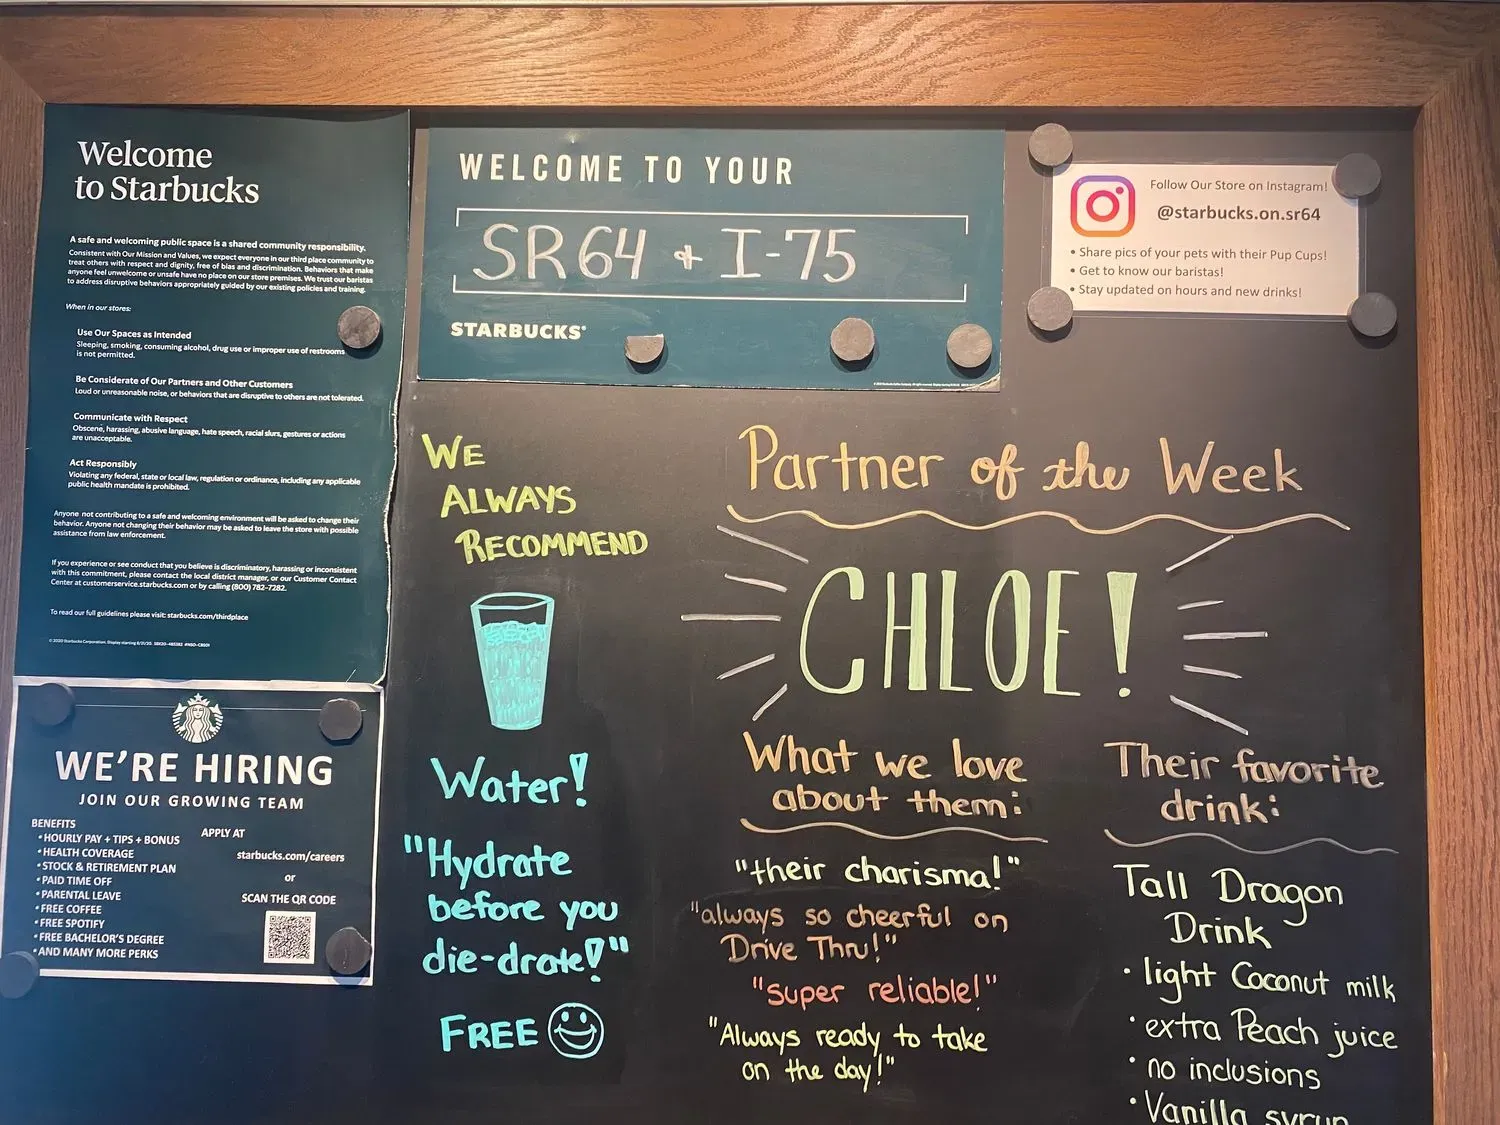 Welcome
to Starbucks
A safe and welcoming public space is a shared community responsibility.
Consistent with Our Mission and Values, we expect everyone in our third place community to
treat others with respect and dignity, free of bias and discrimination. Behaviors that make
anyone feel unwelcome or unsafe have no place on our store premises. We trust our baristas
to address disruptive behaviors appropriately guided by our existing policies and training.
When in our stores:
Use Our Spaces as Intended
Sleeping, smoking, consuming alcohol, drug use or improper use of restrooms
is not permitted.
Be Considerate of Our Partners and Other Customers
Loud or unreasonable noise, or behaviors that are disruptive to others are not tolerated.
Communicate with Respect
Obscene, harassing, abusive language, hate speech, racial slurs, gestures or actions
are unacceptable.
Act Responsibly
Violating any federal, state or local law, regulation or ordinance, including any applicable
public health mandate is prohibited.
Anyone not contributing to a safe and welcoming environment will be asked to change their
behavior. Anyone not changing their behavior may be asked to leave the store with possible
assistance from law enforcement.
If you experience or see conduct that you believe is discriminatory, harassing or inconsistent
with this commitment, please contact the local district manager, or our Customer Contact
Center at customerservice.starbucks.com or by calling (800) 782-7282.
To read our full guidelines please visit: starbucks.com/thirdplace
WE'RE HIRING
JOIN OUR GROWING TEAM
BENEFITS
• HOURLY PAY + TIPS + BONUS
• HEALTH COVERAGE
• STOCK & RETIREMENT PLAN
• PAID TIME OFF
• PARENTAL LEAVE
• FREE COFFEE
• FREE SPOTIFY
• FREE BACHELOR'S DEGREE
• AND MANY MORE PERKS
APPLY AT
starbucks.com/careers
or
SCAN THE QR CODE
WELCOME TO YOUR
SR64 + I-75
STARBUCKS
Follow Our Store on Instagram!
@starbucks.on.sr64
• Share pics of your pets with their Pup Cups!
• Get to know our baristas!
• Stay updated on hours and new drinks!
WE
ALWAYS
RECOMMEND
Water!
"Hydrate
before you
die-drate!"
FREE
Partner of the Week
CHLOE!
What we love
about them:
"their charisma!"
"always so cheerful on
Drive Thru!"
"super reliable!"
"Always ready to take
on the day!"
Their favorite
drink:
Tall Dragon
Drink
• light Coconut milk
• extra Peach juice
• no inclusions
• Vanilla syrup